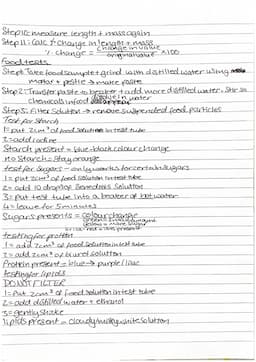 Step 10: measure length + mass again
Step 11: Calc % change in length + mass
% change = change in value / original value x100
Food tests
Step 1: Take food sample + grind with distilled water using
mortar + pestle → make paste
Step 2: Transfer paste to beaker + add more distilled water. Stir so
chemicals in food dissolve in water
Step 3: Filter solution → remove suspended food particles
Test for starch
1 = put 2cm³ of food solution in test tube
2 = add iodine
Starch present = blue-black colour change
No Starch = Stay orange
test for sugars - only works for certain sugars
1 = put 2cm³ of food solution in test tube
2 = add 10 drops of Benedict's solution
3 = put test tube into a beaker of hot water
4 = leave for 5 minutes
Sugars present = colour change
green = small amount
yellow = more sugar
brick-red = lots present
testing for protein
1 = add 2cm³ of food solution into test tube
2 = add 2cm³ of biuret solution
Protein present = blue → purple/lilac
testing for lipids
DO NOT FILTER
1 = Put 2cm³ of food solution in test tube
2 = add distilled water + ethanol
3 = gently shake
lipids present = cloudy milky white solution